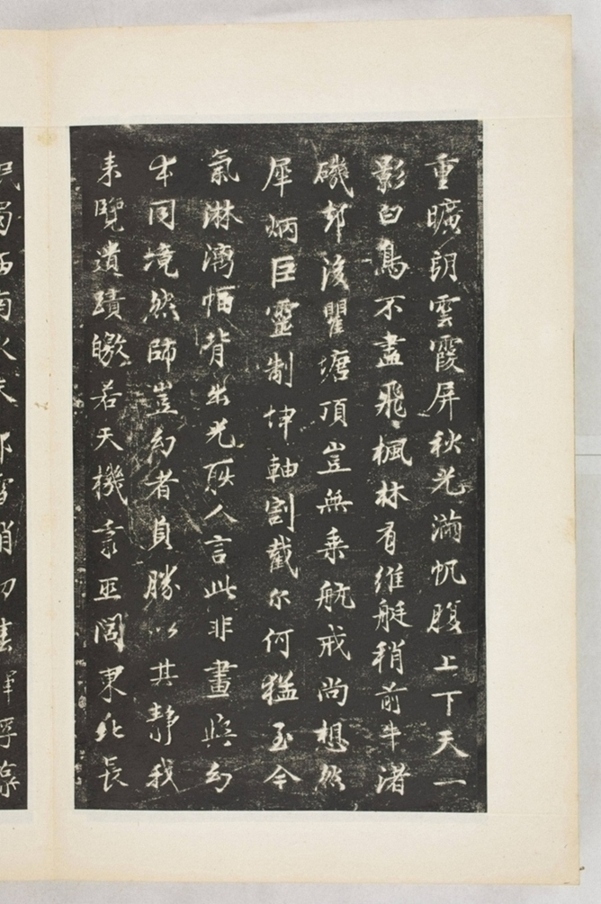 重曠朗雲霞屏秋光滿帆腹上下天一
影白鳥不盡飛楓林有維艇稍前牛渚
磯却後瞿塘頂豈無乗航戒尚想然
犀炳巨靈制坤軸割截尔何猛至今
氣淋漓幅背出光耿人言此非畫與幻
本同境然師豈幻者負勝以其静我
来覽遺蹟皦若天機素巫閭東北長